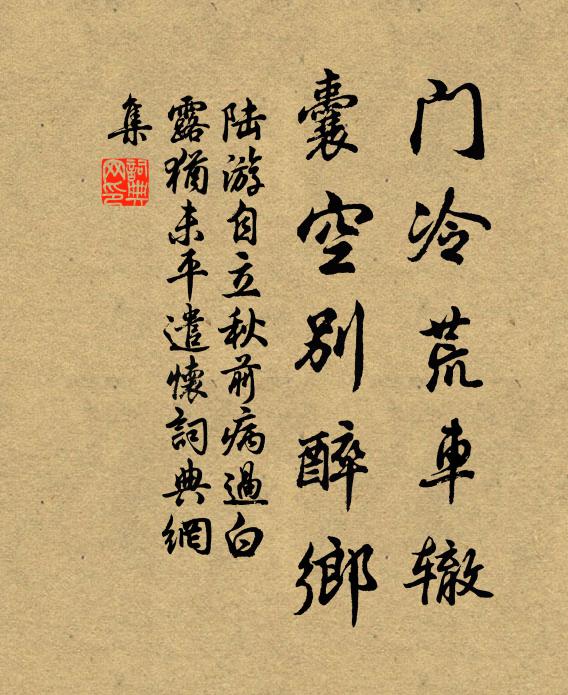 门冷荒車辙
囊空别醉鄉
陆游自立秋前病過白
露猶未平遣懷詞典網
集
詞典
网印